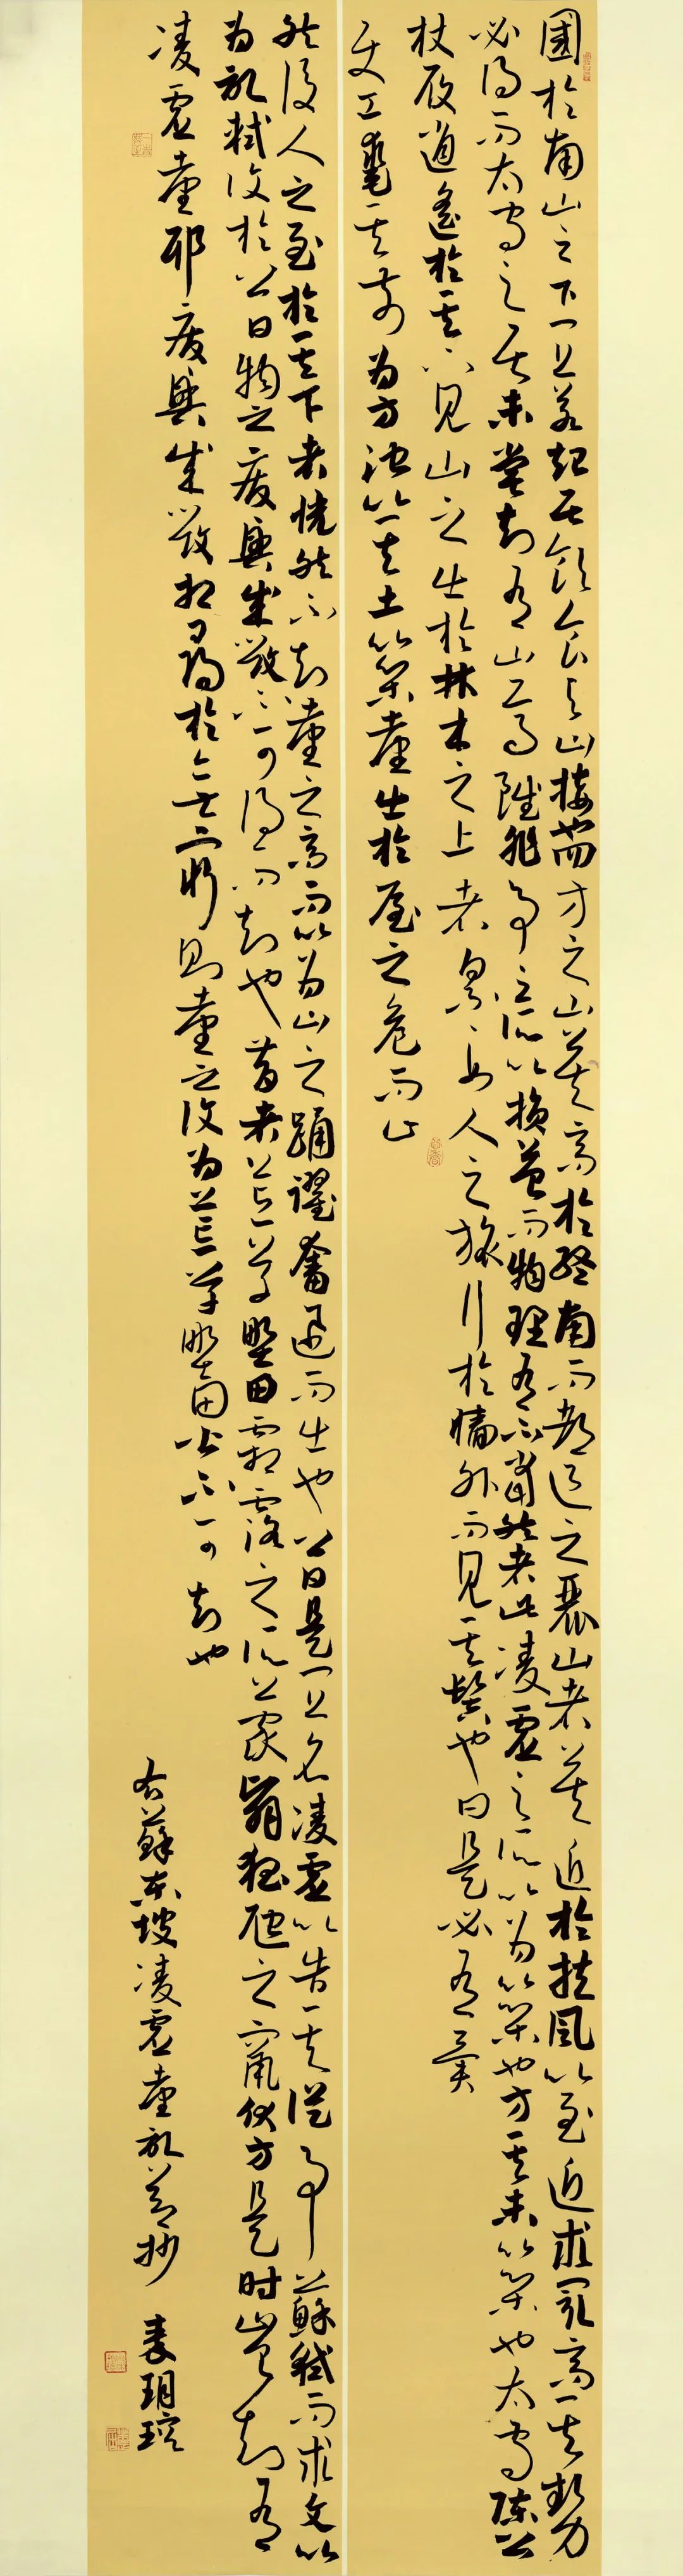 國於南山之下宜若起居飲食與山接也四方之山莫高於終南而都邑之麗山者莫近於扶風以至近求最高其勢
必得而太守之居未嘗知有山焉雖非事之所以損益而物理有不當然者此凌虛之所以為築也方其未築也太守陳公
杖屨逍遙於其下見山之出於林木之上者纍々如人之旅行於牆外而見其髻也曰是必有異
使工鑿其前為方池以其土築臺出於屋之危而止
然後人之至於其下者恍然不知臺之高而以為山之踊躍奮迅而出也公曰是宜名凌虛以告其從事蘇軾而求文以
為記軾復於公曰物之廢興成毀不可得而知也昔者荒草野田霜露之所蒙翳狐虺之竄伏方是時豈知有
凌虛臺耶廢興成毀相尋於無窮則臺之復為荒草野田皆不可知也
右蘇東坡凌虛臺記節抄 麦玥